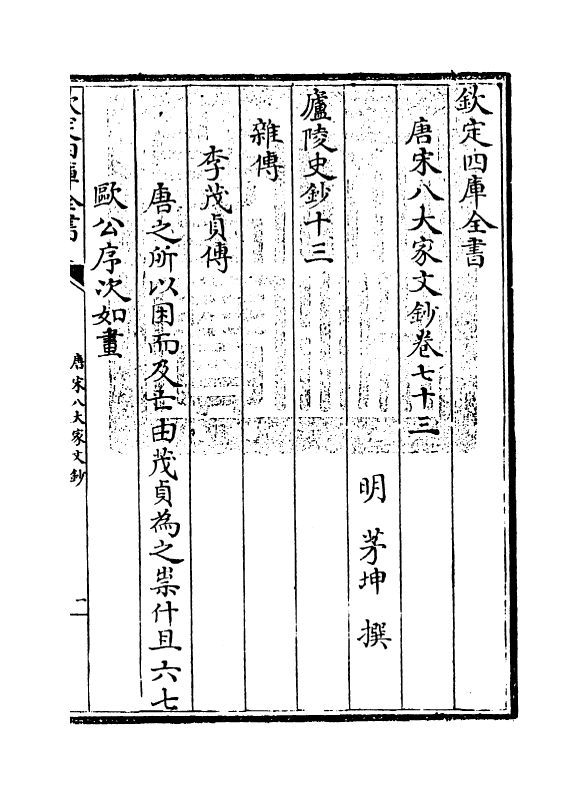 欽定四庫全書
唐宋八大家文鈔卷七十三
明 茅坤 撰
廬陵史鈔十三
雜傳
李茂貞傳
唐之所以困而及亡由茂貞為之祟什且六七
歐公序次如畫
欽定四庫全書
唐宋八大家文鈔
一